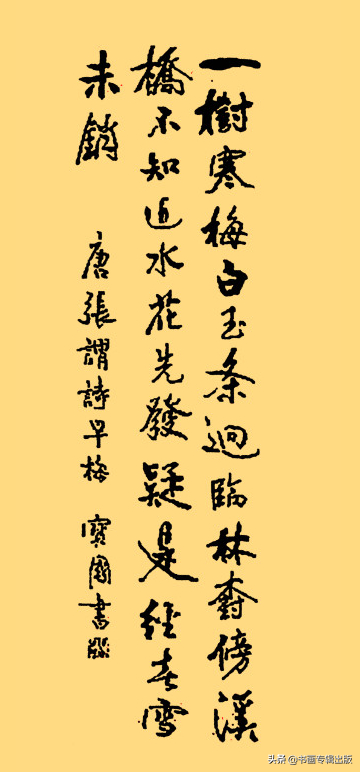 一樹寒梅白玉条迥臨林傍溪
橋不知近水花先發疑是經春雪
未銷 唐張謂詩早梅 寶國書
头条 @书画专辑出版